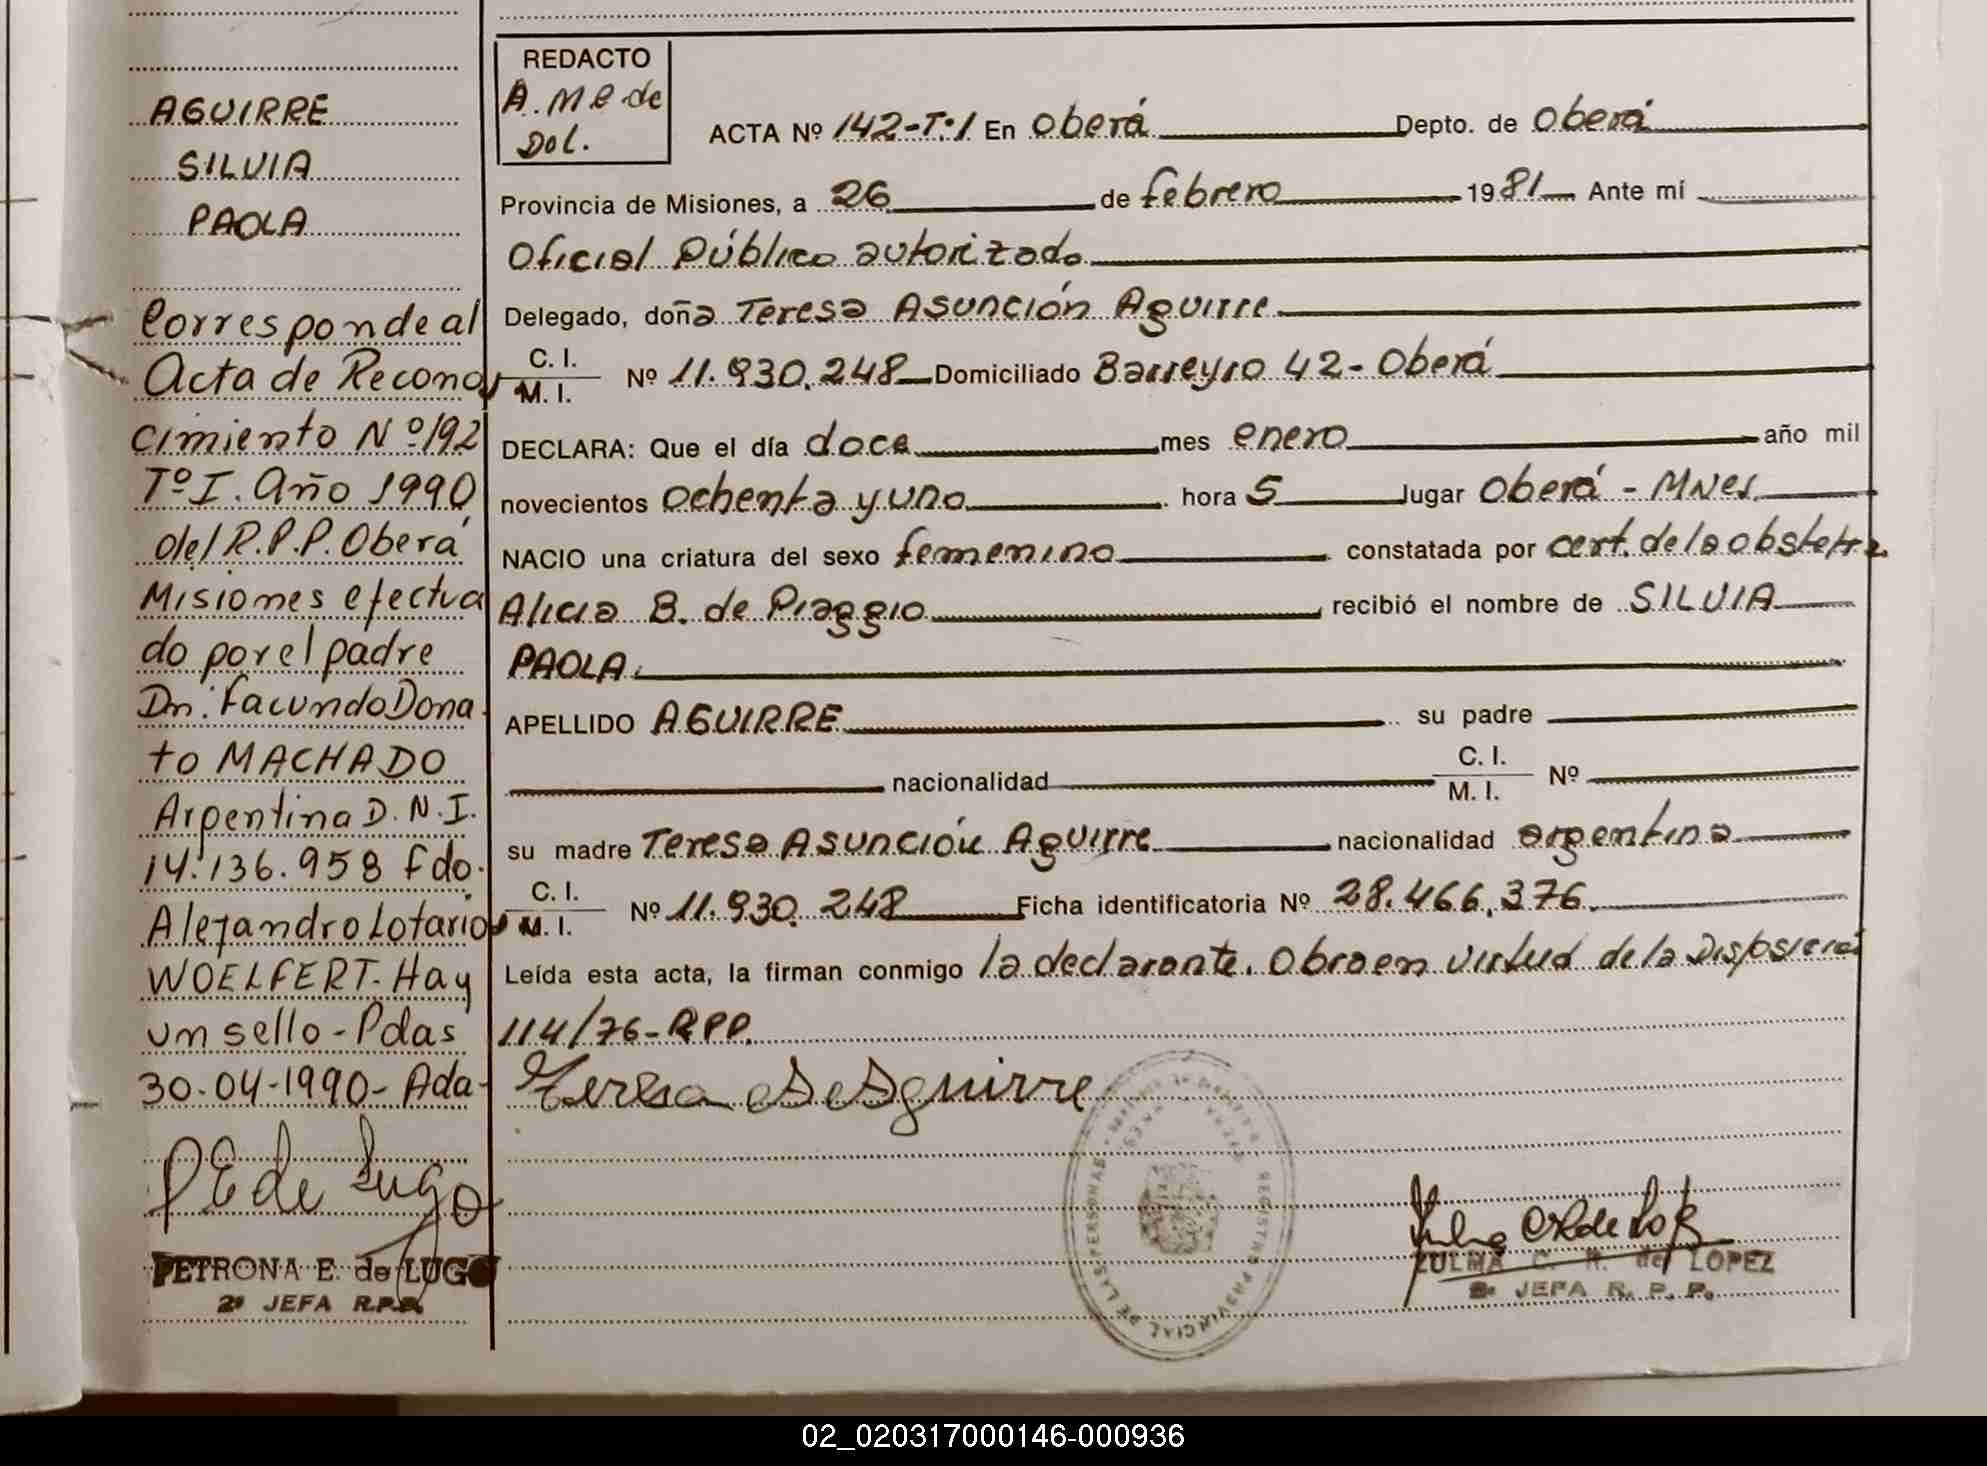 AGUIRRE
SILVIA
PAOLA
Corresponde al
Acta de Recono
cimiento Nº 192
Tº I. Año 1990
del R.P.P. Oberá
Misiones efectua
do por el padre
Dn. Facundo Dona
to MACHADO
Argentina D.N.I.
14.136.958 fdo.
Alejandro Lotario
WOELFERT. Hay
un sello - Pdas
30-04-1990 - Ada-
PE de Lugo
PETRONA E. de LUGO
2ª JEFA R.P.P.
REDACTO
A. M e de
Dol.
ACTA Nº 142-T:1 En Oberá Depto. de Oberá
Provincia de Misiones, a 26 de febrero 1981 Ante mí
Oficial Público autorizado
Delegado, doña Teresa Asunción Aguirre
C. I.
M. I. Nº 11.930.248 Domiciliado Barreyro 42 - Oberá
DECLARA: Que el día doce mes enero año mil
novecientos ochenta y uno hora 5 lugar Oberá - Mnes.
NACIO una criatura del sexo femenino constatada por cert. de la obstetra
Alicia B. de Piaggio recibió el nombre de SILVIA
PAOLA.
APELLIDO AGUIRRE su padre
nacionalidad C. I.
M. I. Nº
su madre Teresa Asunción Aguirre nacionalidad argentina
C. I.
M. I. Nº 11.930.248 Ficha identificatoria Nº 28.466.376.
Leída esta acta, la firman conmigo la declarante. Obra en virtud de la Disposición
114/76-RPP.
Teresa A. Aguirre
REGISTRO PROVINCIAL DE LAS PERSONAS
ZULMA C. R. de LOPEZ
2ª JEFA R. P. P.
02_020317000146-000936